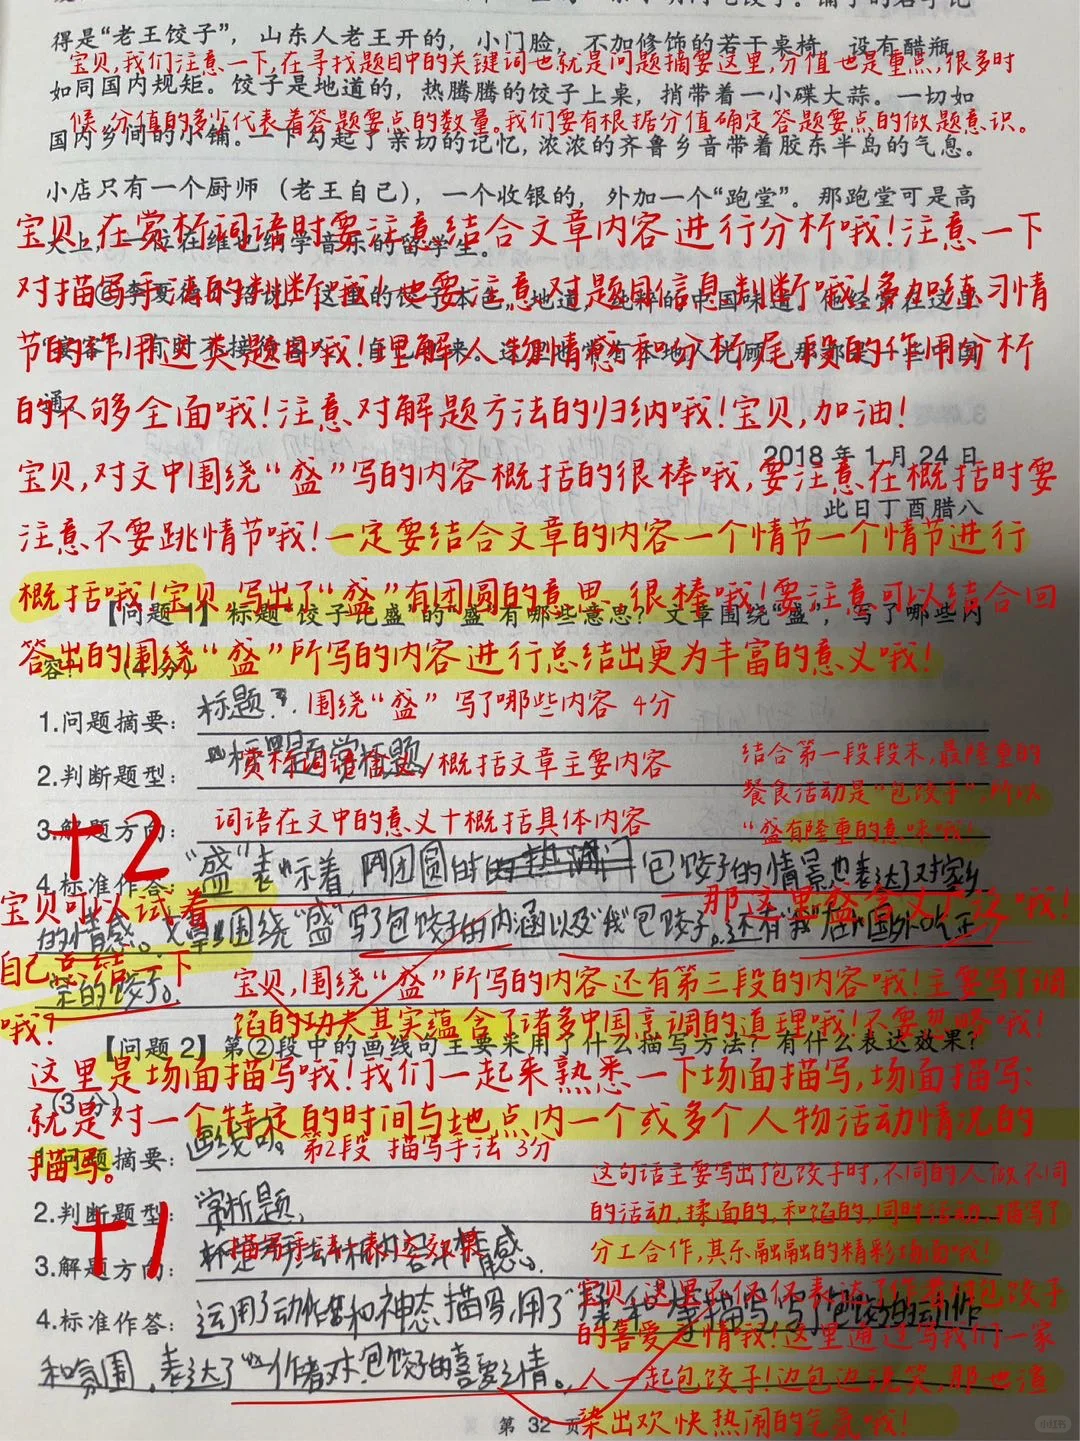 得是“老王饺子”，山东人老王开的，小门脸，不加修饰的若干桌椅，设有醋瓶，
宝贝，我们注意一下，在寻找题目中的关键词也就是问题摘要这里，分值也是重点，很多时
如同国内规矩。饺子是地道的，热腾腾的饺子上桌，捎带着一小碟大蒜。一切如
候，分值的多少代表着答题要点的数量。我们要有根据分值确定答题要点的做题意识。
国内乡间的小铺。一下勾起了亲切的记忆，浓浓的齐鲁乡音带着胶东半岛的气息。
小店只有一个厨师（老王自己），一个收银的，外加一个“跑堂”。那跑堂可是高
宝贝，在赏析词语时要注意结合文章内容进行分析哦！注意一下
大上，一位在维也纳学音乐的留学生。
对描写手法的判断哦！也要注意对题目信息判断哦！多加练习情
节的作用这类题目哦！理解人物情感和分析尾段的作用分析
通。
的不够全面哦！注意对解题方法的归纳哦！宝贝，加油！
2018 年 1 月 24 日
宝贝，对文中围绕“盛”写的内容概括的很棒哦，要注意在概括时要
此日丁酉腊八
注意不要跳情节哦！一定要结合文章的内容一个情节一个情节进行
概括哦！宝贝，写出了“盛”有团圆的意思，很棒哦！要注意可以结合回
【问题 1】标题“饺子比盛”的“盛”有哪些意思？文章围绕“盛”，写了哪些内
答出的围绕“盛”所写的内容进行总结出更为丰富的意义哦！
容？（4 分）
1.问题摘要：标题 围绕“盛”写了哪些内容 4分
2.判断题型：赏析标题 赏析词语含义/概括文章主要内容
结合第一段段末，最隆重的
餐食活动是“包饺子”，所以
“盛有隆重的意味哦！
3.解题方向：词语在文中的意义+概括具体内容
+2
4.标准作答：“盛”表示着，团圆的 包饺子的情景也表达了对家乡
宝贝可以试着
那这里盛含义
的情感。文章围绕“盛”写了包饺子的内涵以及“我”包饺子。还有“我”在国外吃正
自己总结一下
宗的饺子。
宝贝，围绕“盛”所写的内容还有第三段的内容哦！主要写了调
哦？
馅的功夫其实蕴含了诸多中国烹调的道理哦！不要忽略哦！
【问题 2】第②段中的画线句主要采用了什么描写方法？有什么表达效果？
这里是场面描写哦！我们一起来熟悉一下场面描写，场面描写：
（3 分）
就是对一个特定的时间与地点内一个或多个人物活动情况的
描写。
1.问题摘要：画线句。第2段 描写手法 3分
这句话主要写出了包饺子时，不同的人做不同
2.判断题型：赏析题，
的活动，揉面的，和馅的，同时行动，描写了
+1
3.解题方向：描写手法+表达效果
分工合作，其乐融融的精彩场面哦！
宝贝，这里不仅仅表达了作者对包饺子
4.标准作答：运用了动作和神态描写，用了 等描写，写了包饺子的动作
的喜爱之情哦！这里通过写我们一家
和氛围，表达了作者对包饺子的喜爱之情。
人一起包饺子！边包边说笑，那也渲
染出欢快热闹的气氛哦！
第 32 页
小红书